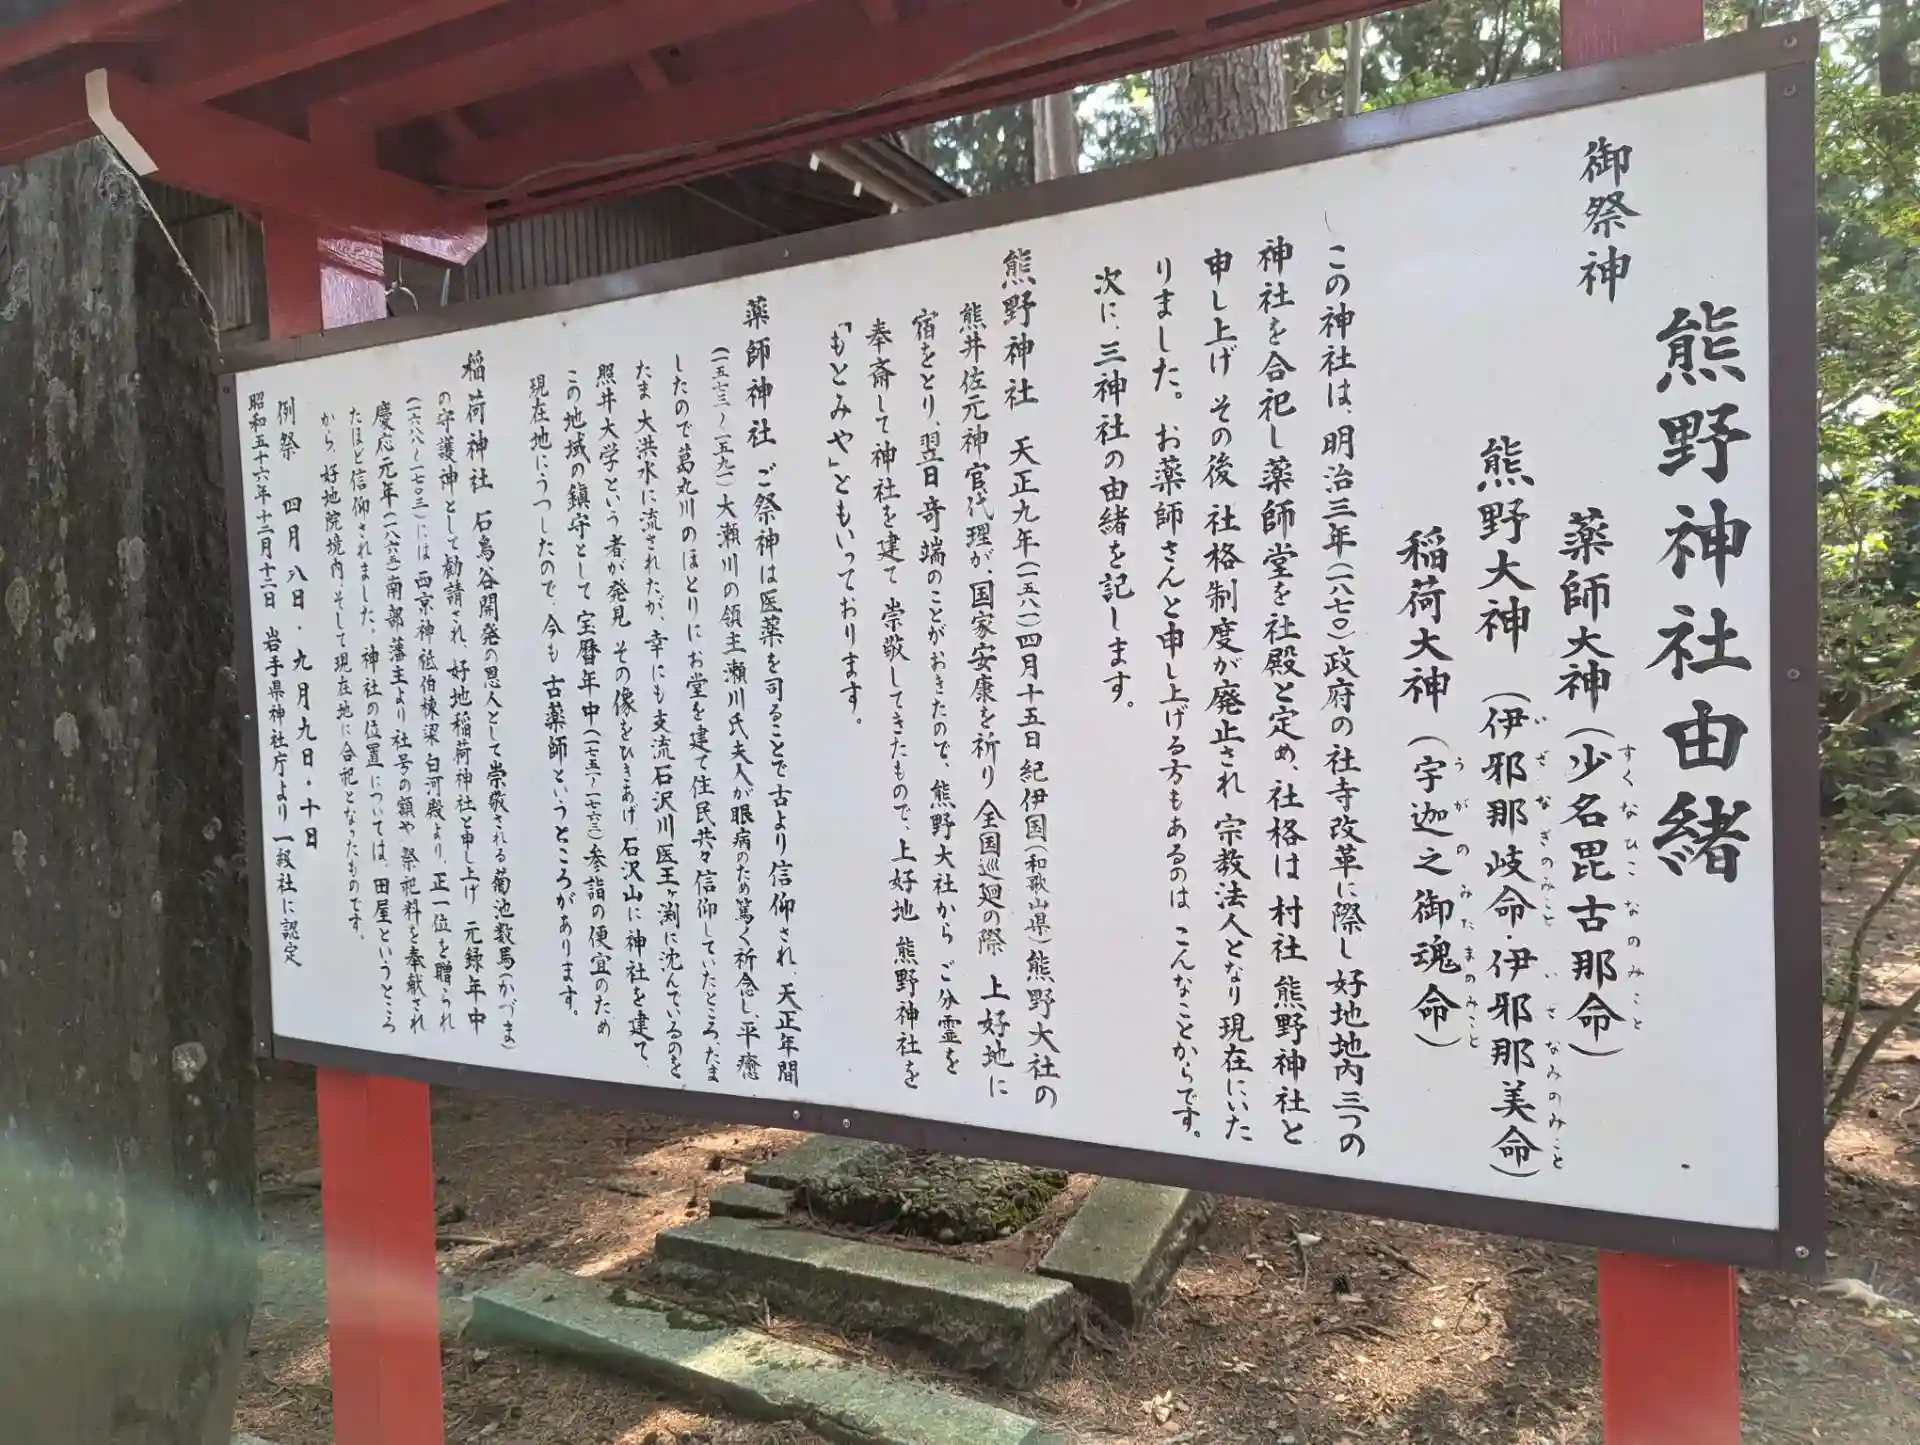 熊野神社由緒
御祭神
薬師大神（少名毘古那命）
すくなひこなのみこと
熊野大神　（伊邪那岐命・伊邪那美命）
いざなぎのみこと　いさなみのみこと
稲荷大神（宇迦之御魂命）
うがのみたまのみこと
この神社は、明治三年（一八七〇）政府の社寺改革に際し好地地内三つの
神社を合祀し薬師堂を社殿と定め、社格は 村社 熊野神社と
申し上げ その後 社格制度が廃止され 宗教法人となり現在にいた
りました。お薬師さんと申し上げる方もあるのは こんなことからです。
次に、三神社の由緒を記します。
熊野神社　天正九年（一五八一）四月十五日 紀伊国（和歌山県）熊野大社の
熊井佐元神官代理が、国家安康を祈り 全国巡廻の際 上好地に
宿をとり、翌日奇端のことがおきたので、熊野大社から ご分霊を
奉斎して神社を建て 崇敬してきたもので、上好地 熊野神社を
「もとみや」ともいっております。
薬師神社　ご祭神は医薬を司ることで古より信仰され、天正年間
（一五七三〜一五九一）大瀬川の領主 瀬川氏夫人が眼病のため篤く祈念し、平癒
したので葛丸川のほとりにお堂を建て住民共々信仰していたところ、たま
たま 大洪水に流されたが、幸にも支流石沢川医王ヶ渕に沈んでいるのを
照井大学という者が発見 その像をひきあげ、石沢山に神社を建て、
この地域の鎮守として 宝暦年中（一七五一〜一七六三）参詣の便宜のため
現在地にうつしたので、今も 古薬師というところがあります。
稲荷神社　石鳥谷開発の恩人として崇敬される菊池数馬（かづま）
の守護神として勧請され、好地稲荷神社と申し上げ 元録年中
（一六八八〜一七〇三）には 西京神祗伯棟梁 白河殿より、正一位を贈られ
慶応元年（一八六五）南部藩主より社号の額や 祭祀料を奉献され
たほど信仰されました。神社の位置については、田屋というところ
から、好地院境内、そして現在地に合祀となったものです。
例祭　四月八日・九月九日・十日
昭和五十六年十二月十二日　岩手県神社庁より 一級社に認定